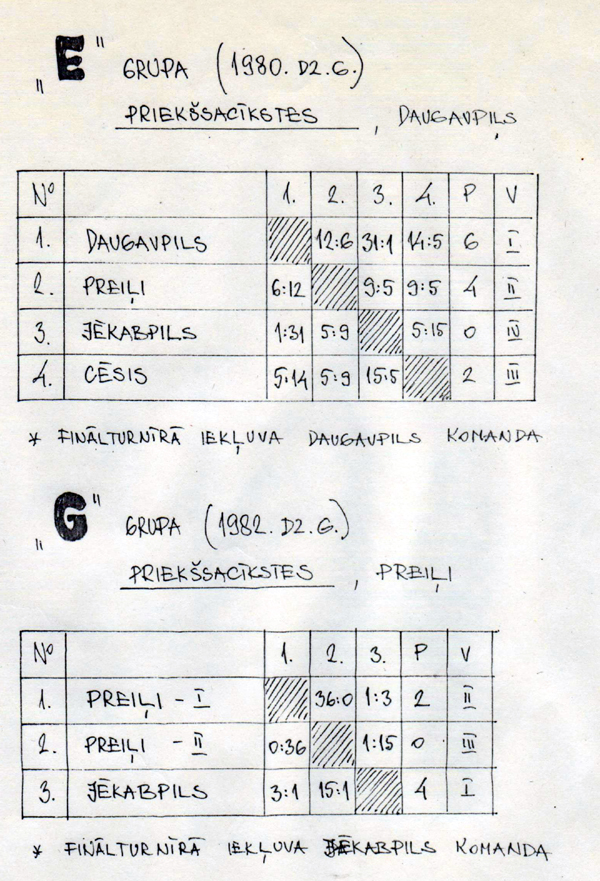 „E" GRUPA (1980. DZ. G.)
PRIEKŠSACĪKSTES, DAUGAVPILS
Nº 1. 2. 3. 4. P V
1. DAUGAVPILS 12:6 31:1 14:5 6 I
2. PREIĻI 6:12 9:5 9:5 4 II
3. JĒKABPILS 1:31 5:9 5:15 0 IV
4. CĒSIS 5:14 5:9 15:5 2 III
* FINĀLTURNĪRĀ IEKĻUVA DAUGAVPILS KOMANDA
„G" GRUPA (1982. DZ. G.)
PRIEKŠSACĪKSTES, PREIĻI
Nº 1. 2. 3. P V
1. PREIĻI - I 36:0 1:3 2 II
2. PREIĻI - II 0:36 1:15 0 III
3. JĒKABPILS 3:1 15:1 4 I
* FINĀLTURNĪRĀ IEKĻUVA JĒKABPILS KOMANDA